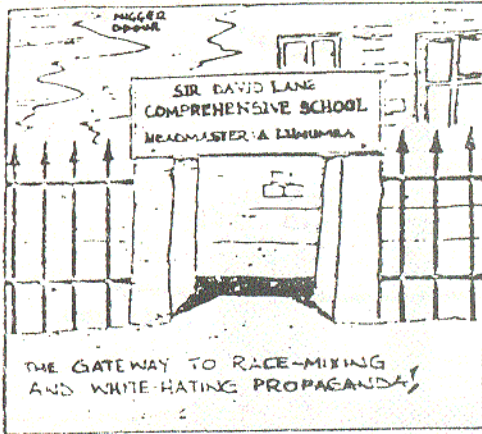 NIGGER
ODOUR
SIR DAVID LANE
COMPREHENSIVE SCHOOL
HEADMASTER: A LUMUMBA
THE GATEWAY TO RACE-MIXING
AND WHITE-HATING PROPAGANDA!